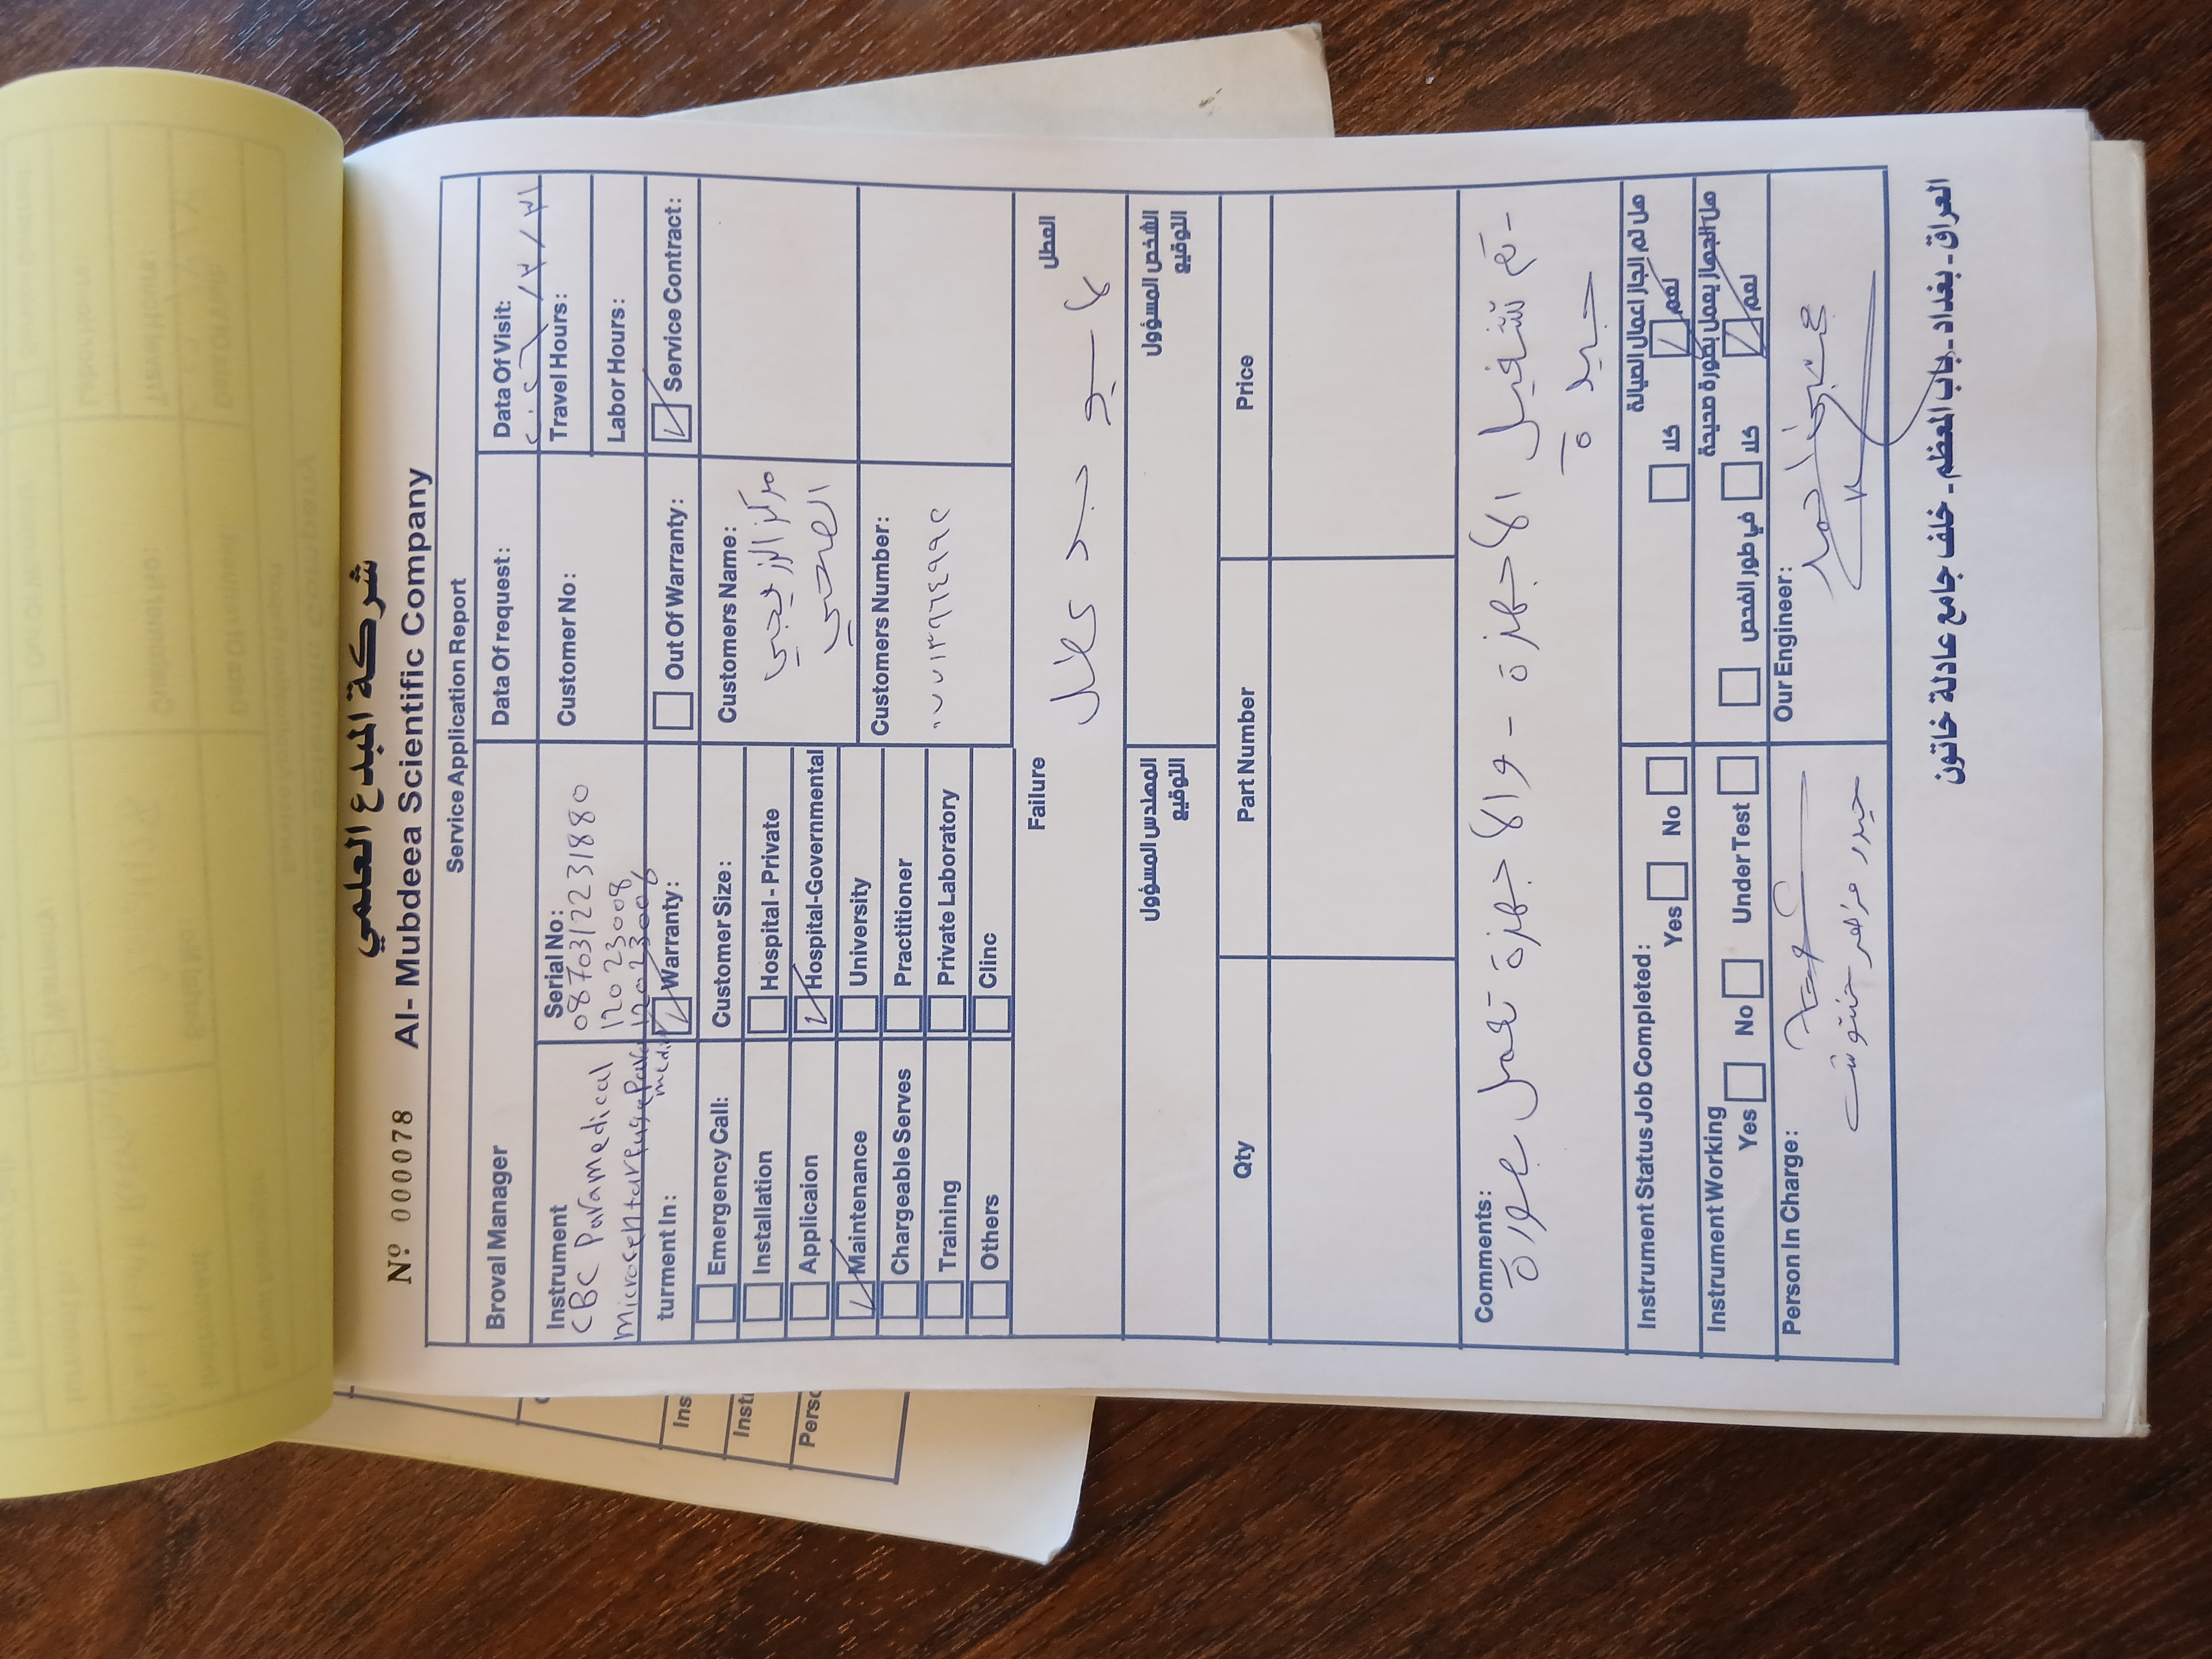 شركة المبدع العلمي
Nº 000078 Al- Mubdeea Scientific Company
Service Application Report
Broval Manager
Data Of request:
Data Of Visit:
Instrument
CBC Paramedical
Serial No:
08703122231880
12023008
12023006
Customer No:
Travel Hours:
Labor Hours:
turment In:
Warranty:
Out Of Warranty:
Service Contract:
Emergency Call:
Installation
Applicaion
Maintenance
Chargeable Serves
Training
Others
Customer Size:
Hospital - Private
Hospital-Governmental
University
Practitioner
Private Laboratory
Clinc
Customers Name:
مركز
الصحي
Customers Number:
٠٧٧١٣٩٦٤٩٩٢
Failure
العطل
لا يوجد عطل
المهندس المسؤول
التوقيع
الشخص المسؤول
التوقيع
Qty
Part Number
Price
Comments:
- تم تشغيل الأجهزة - والأجهزة تعمل بصورة
جيدة
Instrument Status Job Completed:
Yes
No
هل تم انجاز اعمال الصيانة
كلا
نعم
Instrument Working
Yes
No
Under Test
هل الجهاز يعمل بصورة صحيحة
في طور الفحص
كلا
نعم
Person In Charge:
حيدر
Our Engineer:
العراق - بغداد - باب المعظم - خلف جامع عادلة خاتون
Ins
Inst
Perso